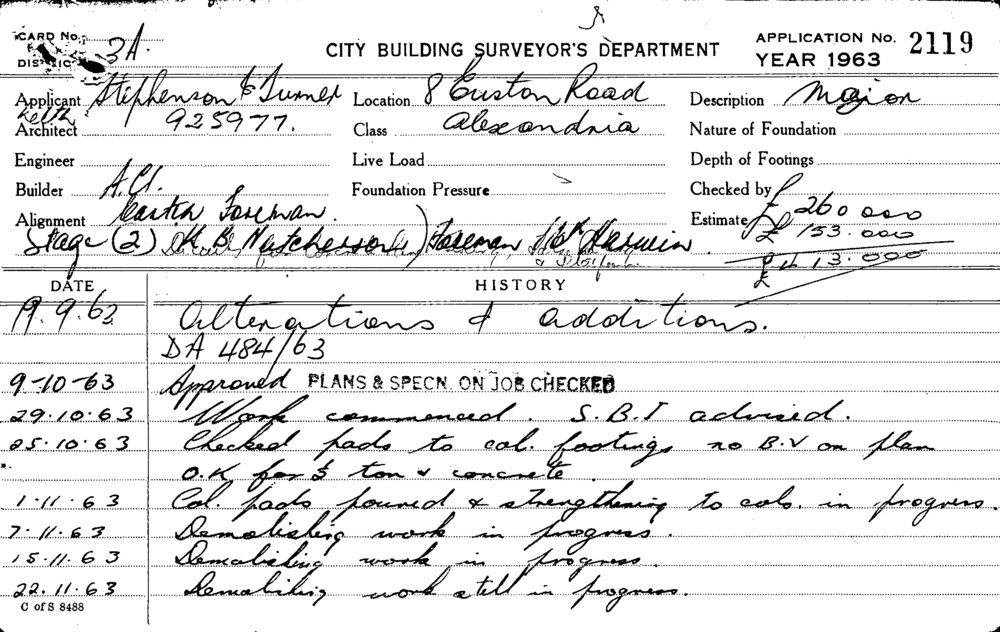 CARD No. 3A. CITY BUILDING SURVEYOR'S DEPARTMENT APPLICATION No. 2119
DISTRICT YEAR 1963
Applicant Stephenson & Turner Location 8 Euston Road Description Major
Keith
Architect 925977. Class Alexandria Nature of Foundation
Engineer Live Load Depth of Footings
Builder A.C.I. Foundation Pressure Checked by
Alignment Foreman. Estimate £ 260 000
£ 153.000
Stage (2) K. B. Foreman
£ 413.000
DATE HISTORY
19.9.63 Alterations & additions.
DA 484/63
9-10-63 Approved PLANS & SPECN. ON JOB CHECKED
29.10.63 Work commenced. S.B.I advised.
25.10.63 Checked pads to col. footings no B.V on plan
O.K for ton & concrete.
1.11.63 Col. pads poured & strengthening to cols. in progress.
7.11.63 Demolishing work in progress.
15.11.63 Demolishing work in progress.
22.11.63 Demolishing work still in progress.
C of S 8488